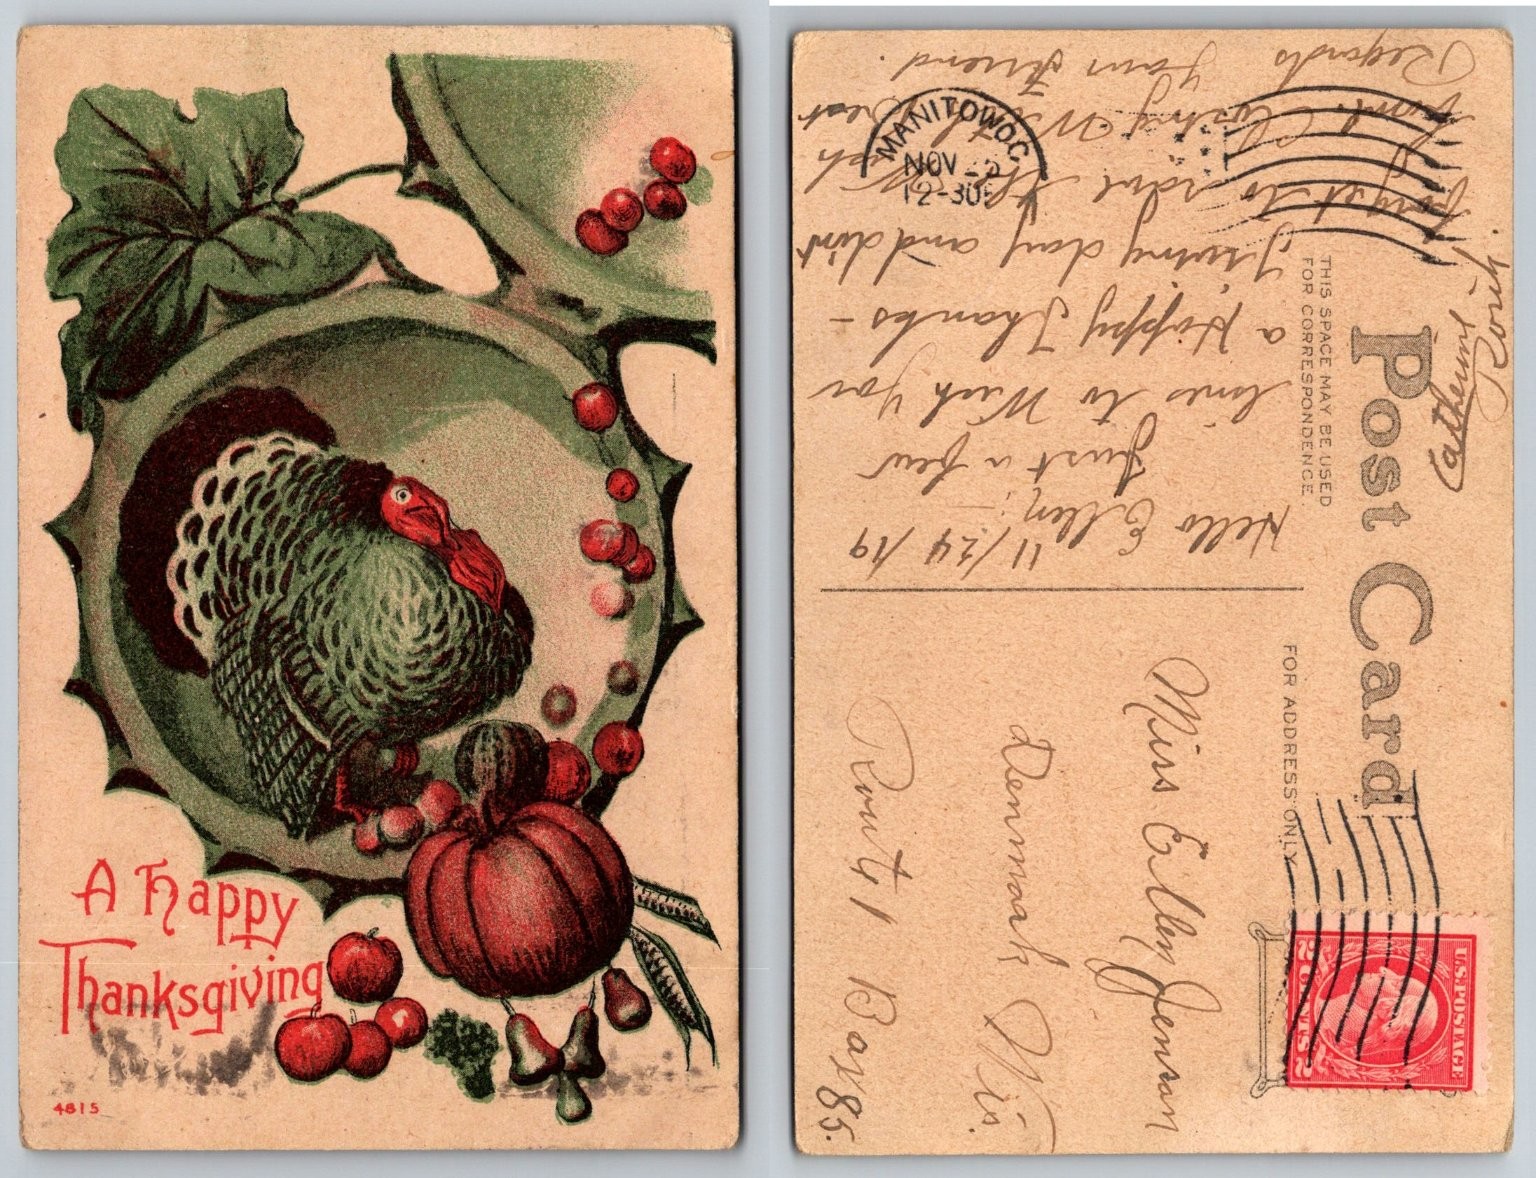 A Happy
Thanksgiving
4815
Post Card
THIS SPACE MAY BE USED
FOR CORRESPONDENCE.
FOR ADDRESS ONLY
MANITOWOC
NOV 25
12-30P
11/24/19
Hello Ellen: –
Just a few
lines to Wish you
a Happy Thanks-
giving day and dint
forget to
Closing With Best
Regards Your Friend
Catherine
Miss Ellen Jensen
Denmark Wis.
Rout 1 Box 85.
U.S. POSTAGE
2 CENTS 2